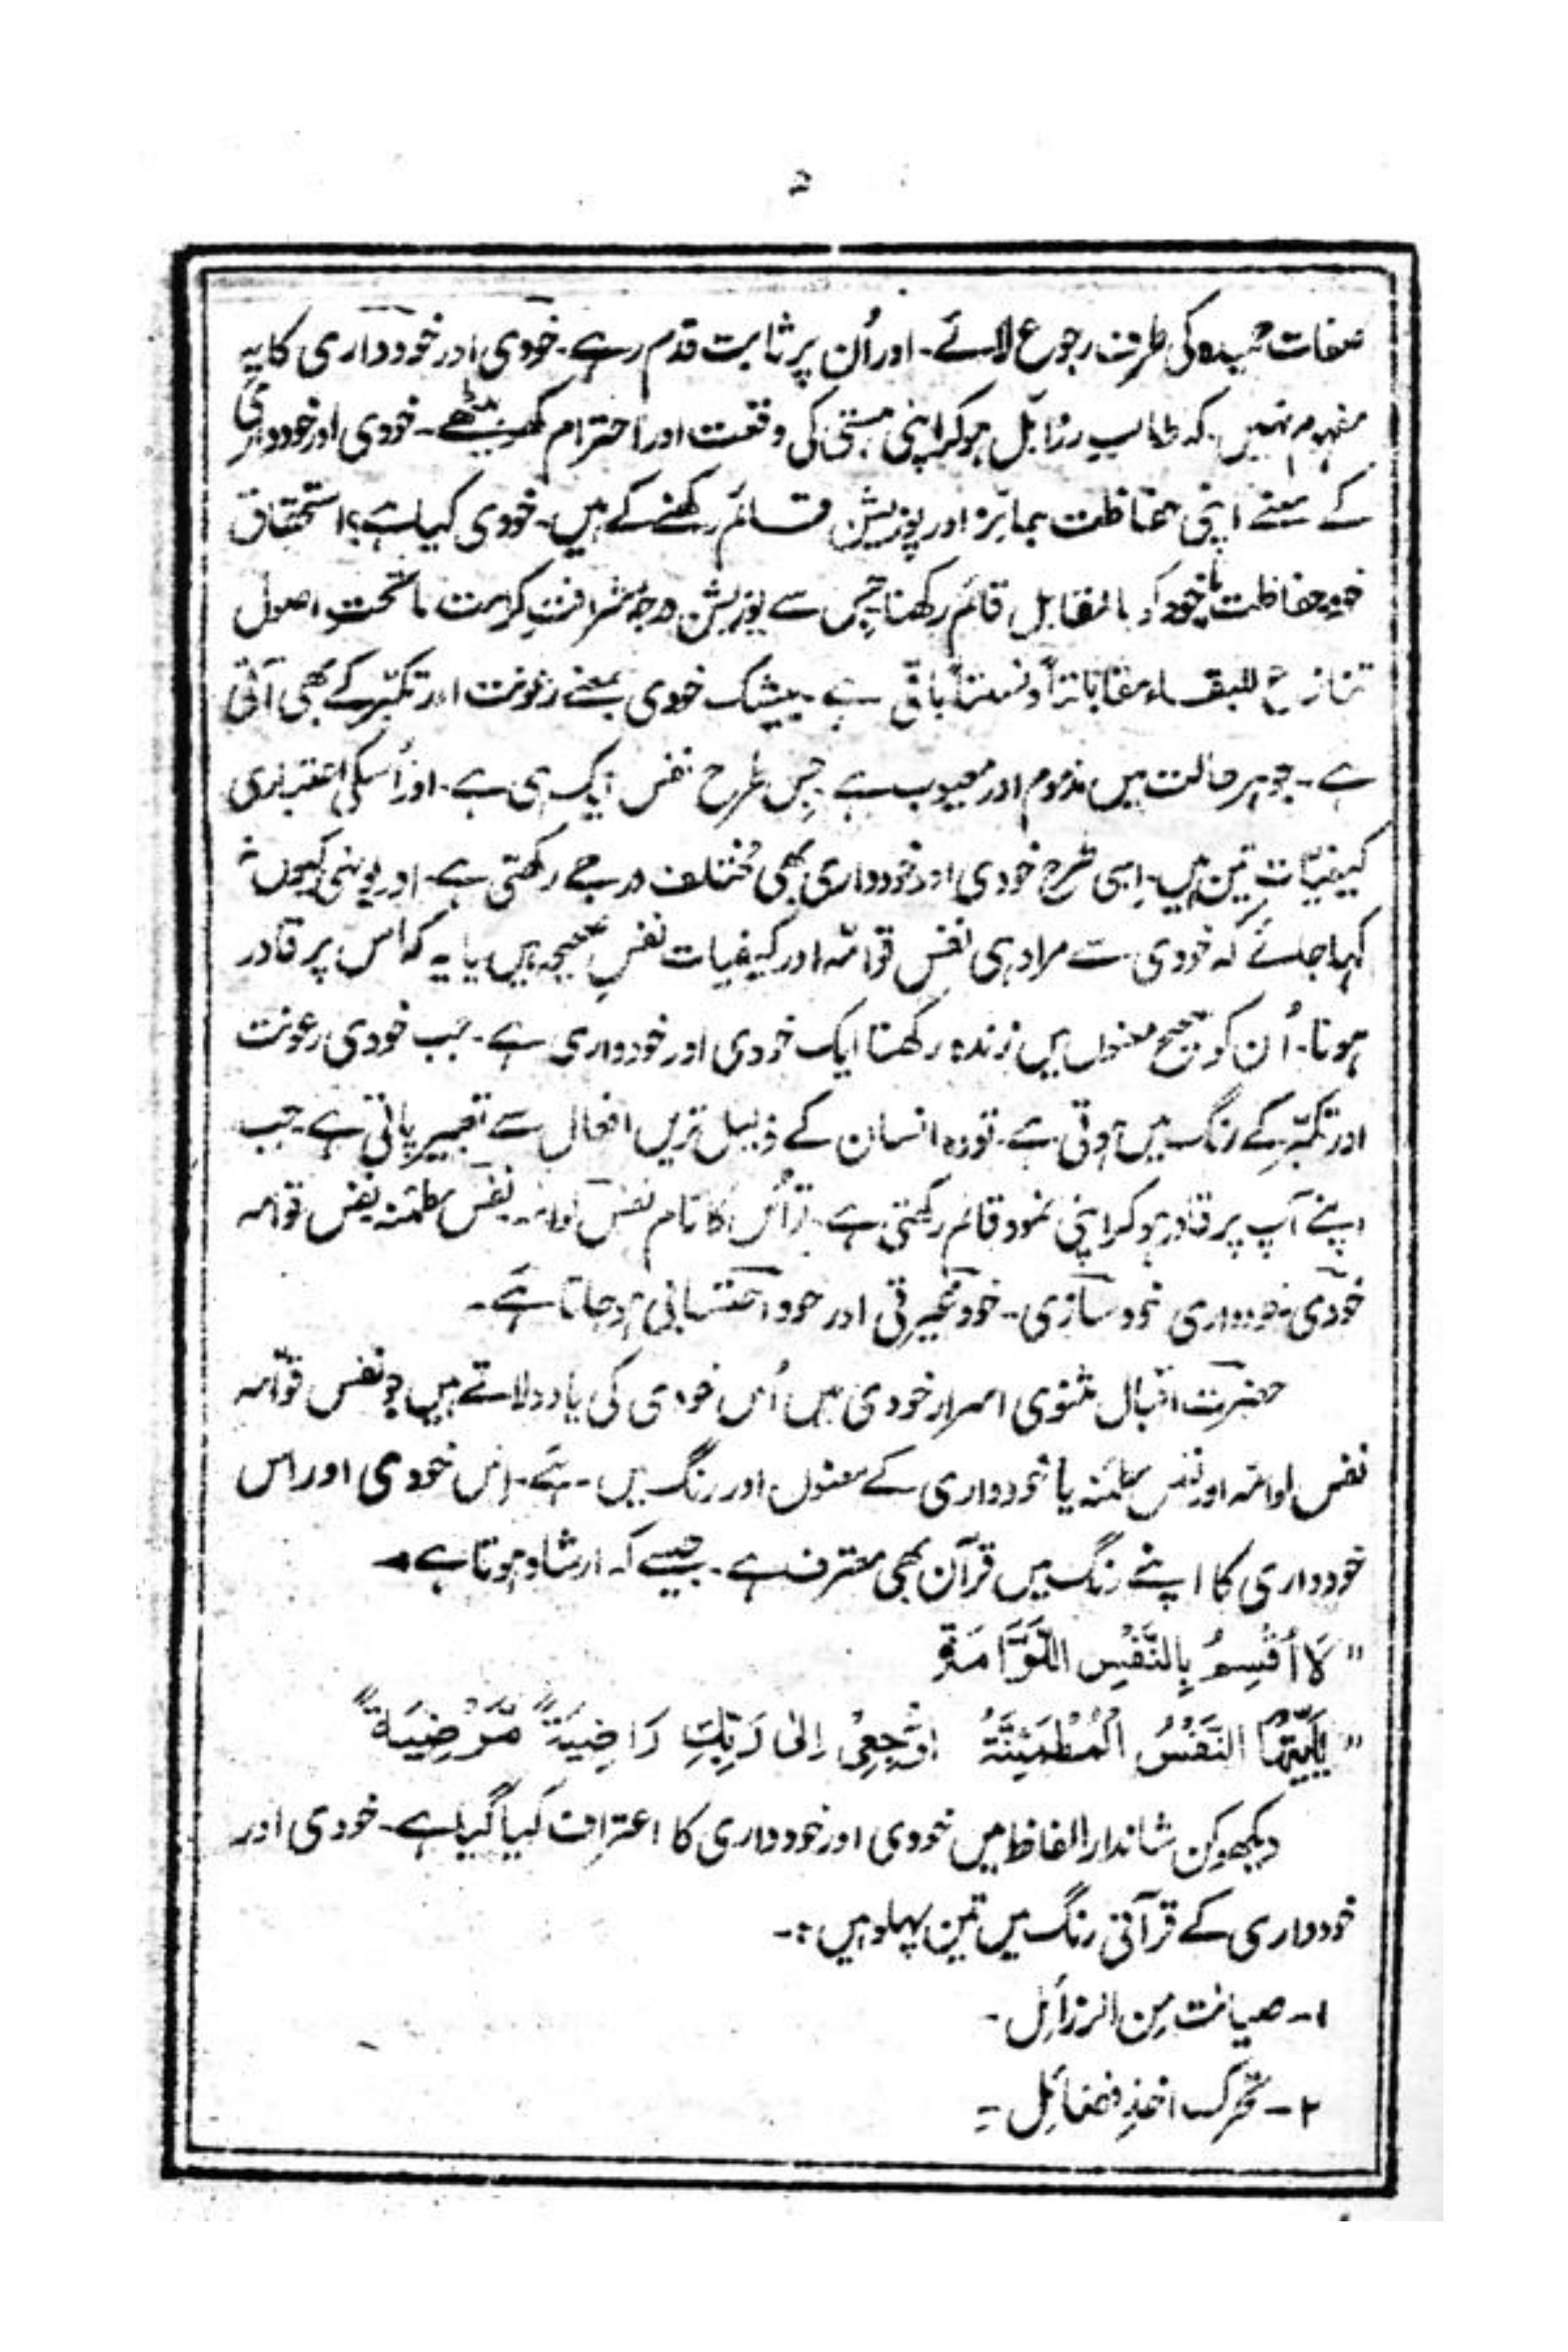 ۵
صفات حمیدہ کی طرف رجوع لائے۔ اور اُن پر ثابت قدم رہے۔ خودی اور خودداری کا یہ
مفہوم نہیں کہ طالب رزائل ہو کر اپنی ہستی کی وقعت اور احترام کھو بیٹھے۔ خودی اور خودداری
کے معنے اپنی حفاظت جائز اور پوزیشن قائم رکھنے کے ہیں۔ خودی کیا ہے؟ استحقاق
خود حفاظت یا خود کو بالمقابل قائم رکھنا جس سے پوزیشن درجہ شرافت کرامت ماتحت اصول
تنازع للبقاء مقابلتاً و نسبتاً باقی ہے۔ بیشک خودی بمعنے رعونت اور تکبّر کے بھی آتی
ہے۔ جو ہر حالت میں مذموم اور معیوب ہے جس طرح نفس ایک ہی ہے۔ اور اُسکی اعتباری
کیفیّات تین ہیں۔ اِسی طرح خودی اور خودداری بھی مختلف درجے رکھتی ہے۔ اور یونہی کیوں نہ
کہا جائے کہ خودی سے مراد ہی نفسِ قوامہ اور کیفیات نفسِ صحیحہ ہیں یا یہ کہ اس پر قادر
ہونا۔ اُن کو صحیح معنوں میں زندہ رکھنا ایک خودی اور خودداری ہے۔ جب خودی رعونت
اور تکبّر کے رنگ میں ہوتی ہے۔ تو وہ انسان کے ذلیل ترین افعال سے تعبیر پاتی ہے۔ جب
اپنے آپ پر قادر ہو کر اپنی نمود قائم رکھتی ہے۔ تو اُس کا نام نفس لوامہ۔ نفس مطمئنہ نفس قوامہ
خودی۔ خودداری خود سازی۔ خود غیرتی اور خود احتسابی ہو جاتا ہے۔
حضرت اقبال مثنوی اسرار خودی میں اُس خودی کی یاد دلاتے ہیں جو نفس قوّامہ
نفس لوامہ اور نفس مطمئنہ یا خودداری کے معنوں اور رنگ میں ہے۔ اِس خودی اور اس
خودداری کا اپنے رنگ میں قرآن بھی معترف ہے۔ جیسے کہ ارشاد ہوتا ہے۔
"لَا أُقْسِمُ بِالنَّفْسِ اللَّوَّامَةِ
"يٰٓاَيَّتُهَا النَّفْسُ الْمُطْمَئِنَّةُ ارْجِعِیْ اِلٰی رَبِّكِ رَاضِيَةً مَّرْضِيَةً"
دیکھو کن شاندار الفاظ میں خودی اور خودداری کا اعتراف کیا گیا ہے۔ خودی اور
خودداری کے قرآنی رنگ میں تین پہلو ہیں:۔
۱۔ صیانت مِن الرزائل۔
۲۔ تحرک اخذِ فضائل۔